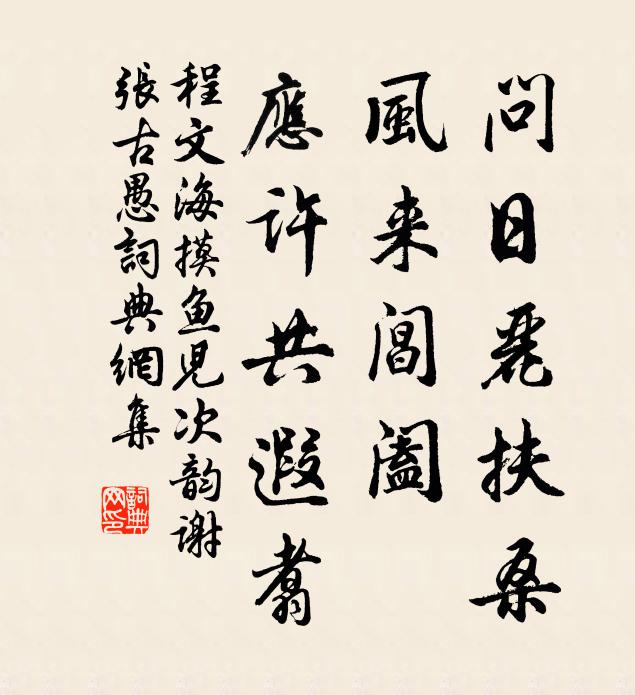 問日麗扶桑
風来閶闔
應許共遐翥
程文海摸鱼児次韵谢
張古愚詞典網集
詞典网印